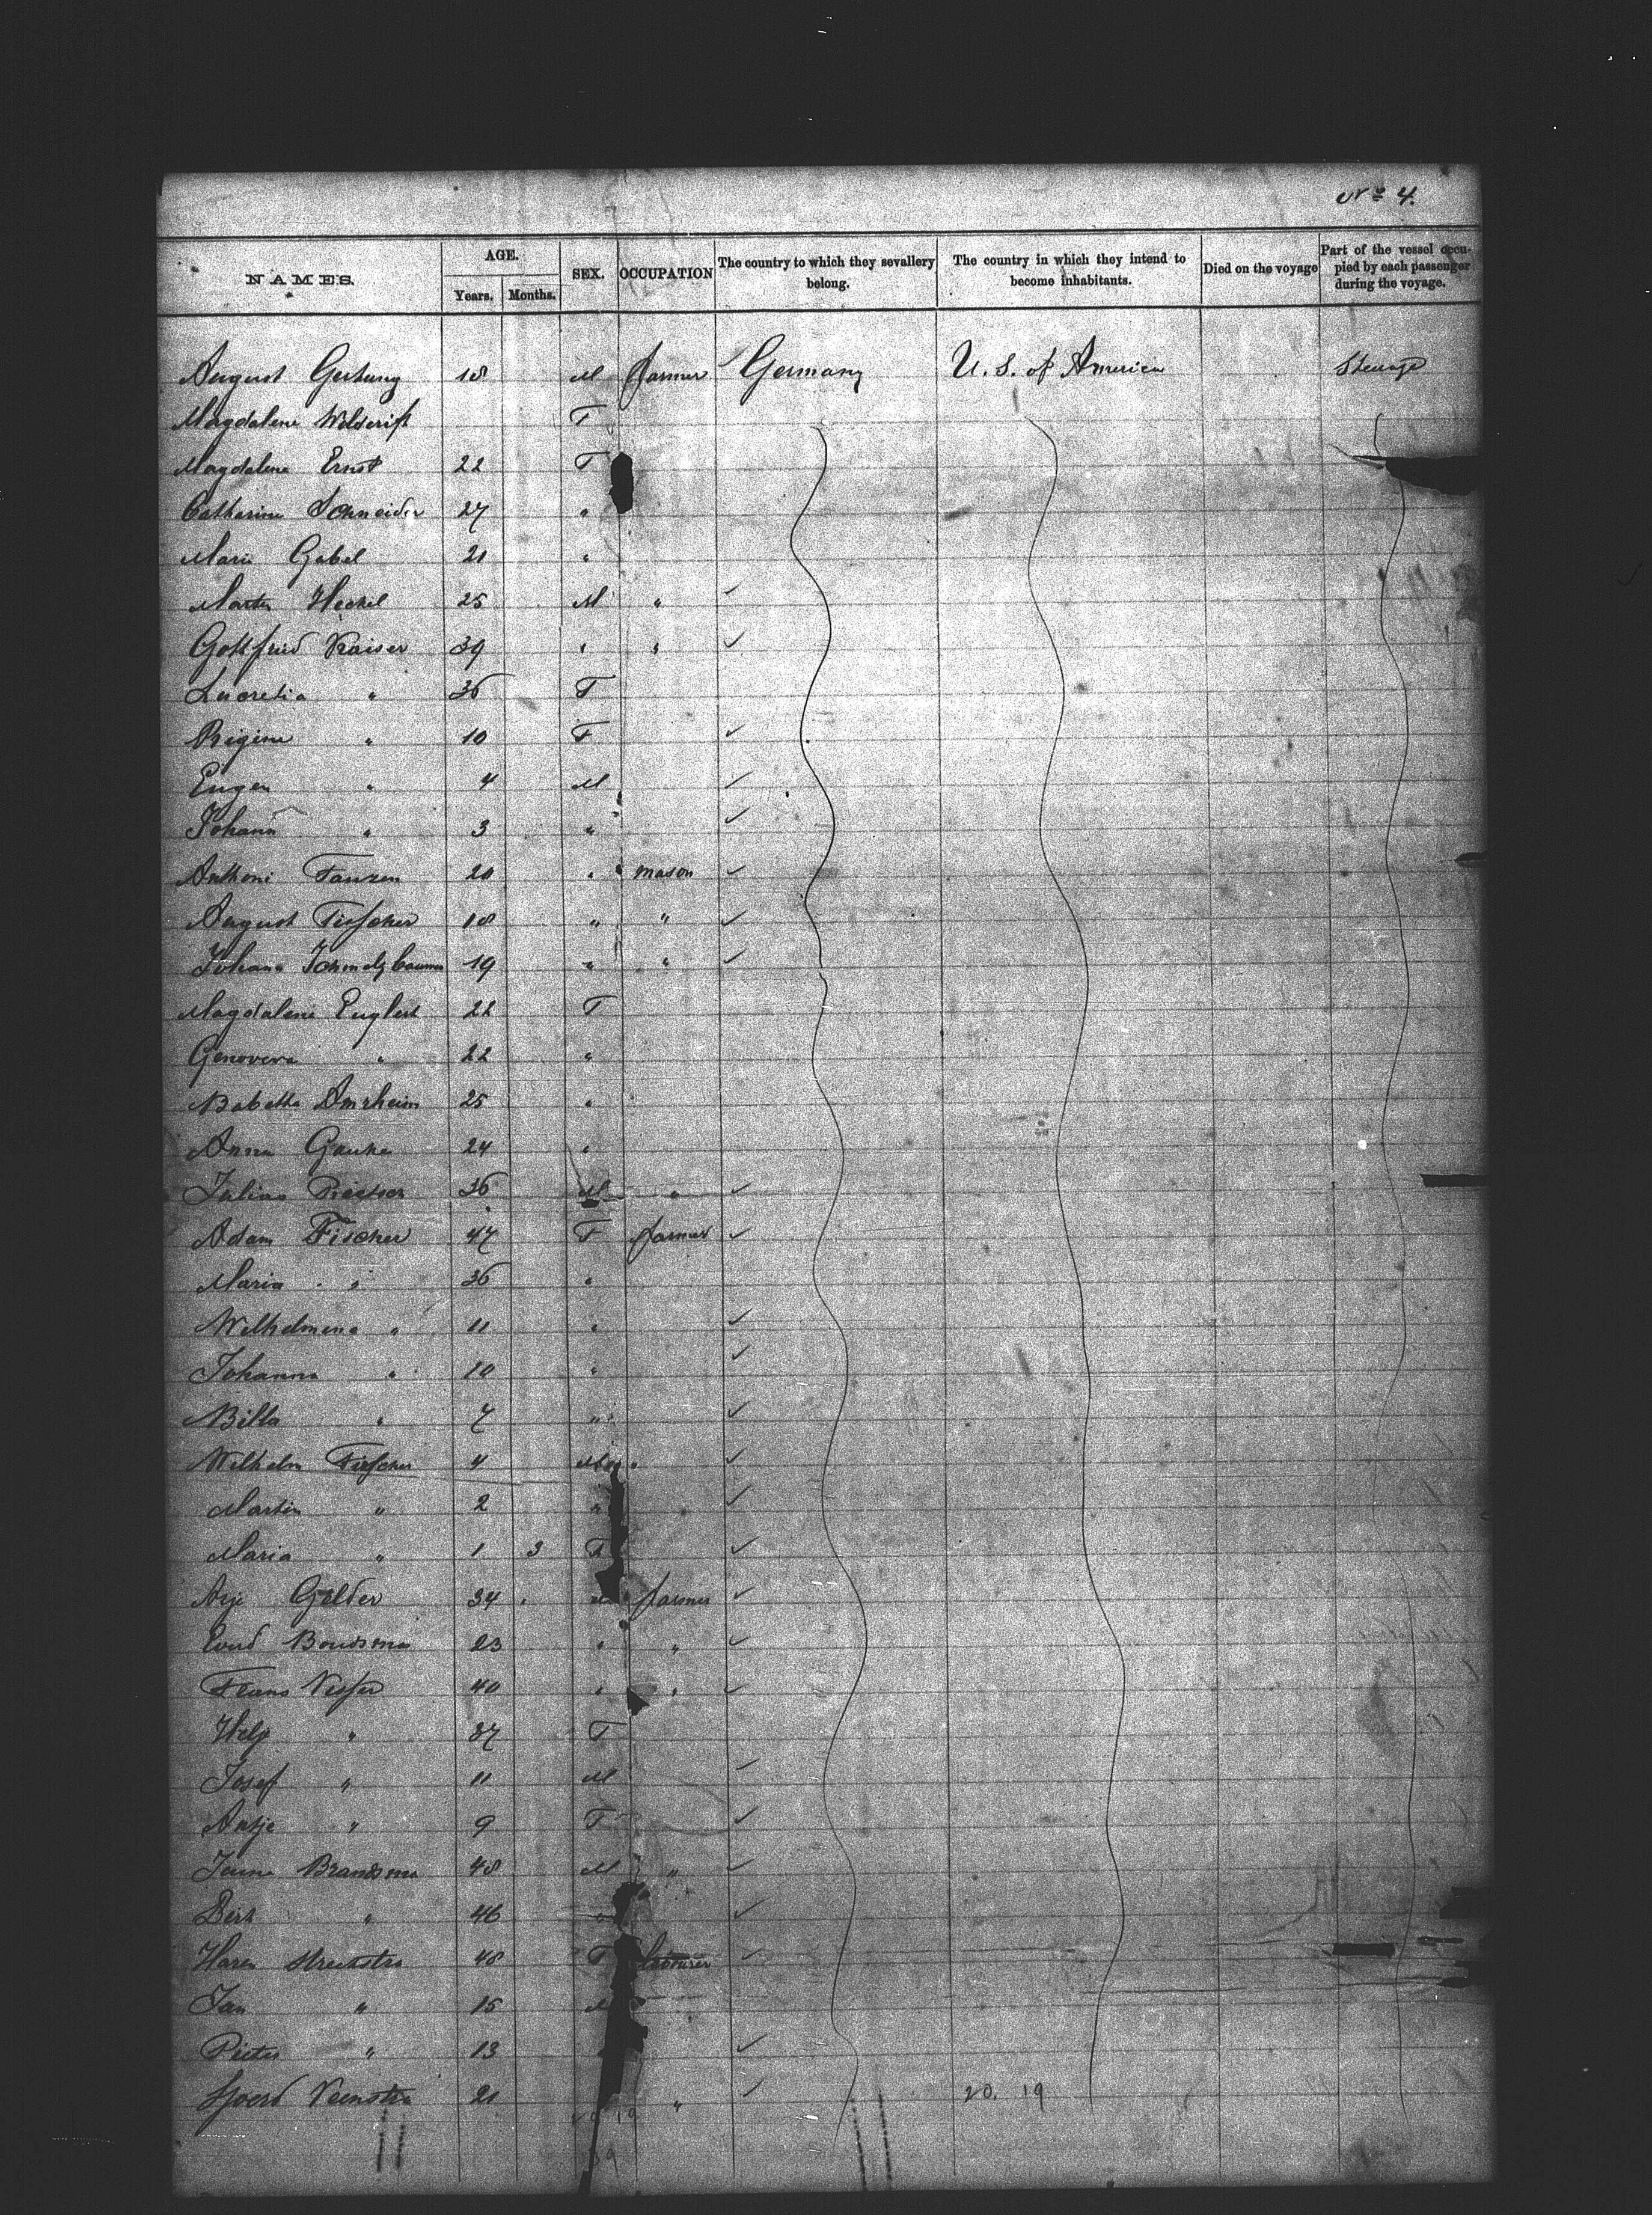 No 4.
NAMES. AGE. Years. Months. SEX. OCCUPATION The country to which they sevallery belong. The country in which they intend to become inhabitants. Died on the voyage Part of the vessel occupied by each passenger during the voyage.
August Gerhung 18 M farmer ✓ Germany U. S. of America Steerage
Magdalene F
Magdalene Ernst 22 F
Catharine Schneider 27 "
Marie Gabel 21 "
Martin Heckel 25 M " ✓
Gottfried Kaiser 39 " " ✓
Lucretia " 36 F
Regine " 10 F ✓
Eugen " 4 M ✓
Johann " 3 " ✓
Anthoni Fanzen 20 " mason ✓
August Fiescher 18 " " ✓
Johann Schmelzbaumer 19 " " ✓
Magdalene Englert 22 F
Genovera " 22 "
Babetha Amrhein 25 "
Anna Gauke 24 "
Julius 36 M " ✓
Adam Fischer 47 F farmer ✓
Maria " 36 "
Wilhelmena " 11 " ✓
Johanna " 10 " ✓
Billa " 7 " ✓
Wilhelm Fiescher 4 M ✓
Martin " 2 " ✓
Maria " 1 3 F ✓
Arje Gelder 34 M farmer ✓
Boudsma 23 " " ✓
Frans Visser 40 " " ✓
" 37 F
Josef " 11 M ✓
Antje " 9 F ✓
Brandsma 48 M " ✓
Dirk " 46 " ✓
Haren 48 F labourer ✓
Jan " 15 M
Pieter " 13 ✓
Sjoerd Veenstra 21 " ✓ 20. 19
20 19
39